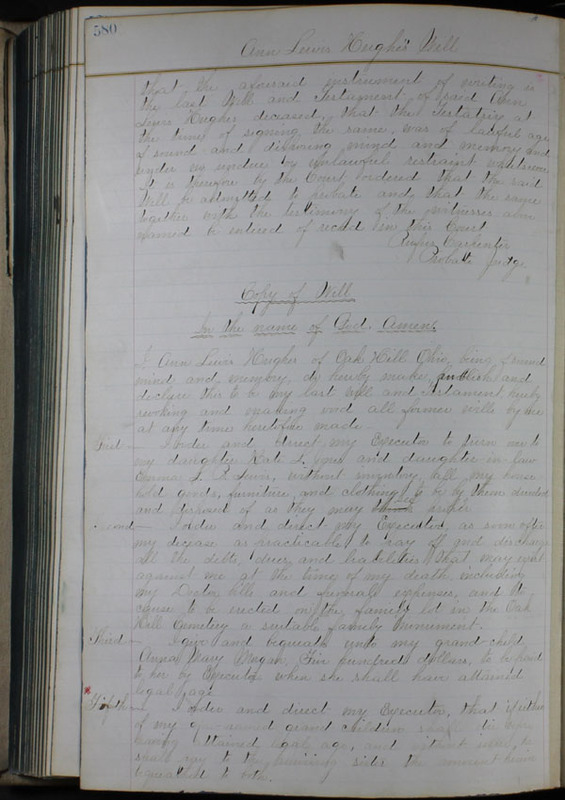 580
Ann Lewis Hughes Will
that the aforesaid instrument of writing is
the last Will and Testament of said Ann
Lewis Hughes deceased, that the Testatrix at
the time of signing the same, was of lawful age
of sound and disposing mind and memory and
under no undue or unlawful restraint whatsoever
It is therefore by the Court ordered that the said
Will be admitted to probate and that the same
together with the testimony of the witnesses above
named be entered of record in this Court
Carpenter
Probate Judge
Copy of Will
In the name of God. Amen.
I Ann Lewis Hughes of Oak Hill Ohio, being of sound
mind and memory, do hereby make, publish and
declare this to be my last will and testament, hereby
revoking and making void all former wills by me
at any time heretofore made.
First — I order and direct my Executor to turn over to
my daughter Kate L. Jones and daughter-in-law
Emma L. R. Lewis, without inventory, all my house
hold goods, furniture, and clothing, to be by them divided
and disposed of as they may see proper.
Second — I order and direct my Executor, as soon after
my decease as practicable to pay off and discharge
all the debts, dues, and liabilities that may exist
against me at the time of my death, including
my Doctor bills and funeral expenses, and to
cause to be erected on the family lot in the Oak
Hill Cemetery a suitable family Monument.
Third — I give and bequeath unto my grand child
Anna Mary Morgan, Five hundred dollars, to be paid
to her by Executor when she shall have attained
legal age
Fifth — I order and direct my Executor, that if either
of my grand children shall die before
having attained legal age, and without issue, he
shall pay to the surviving sister the amount herein
bequeathed to both.